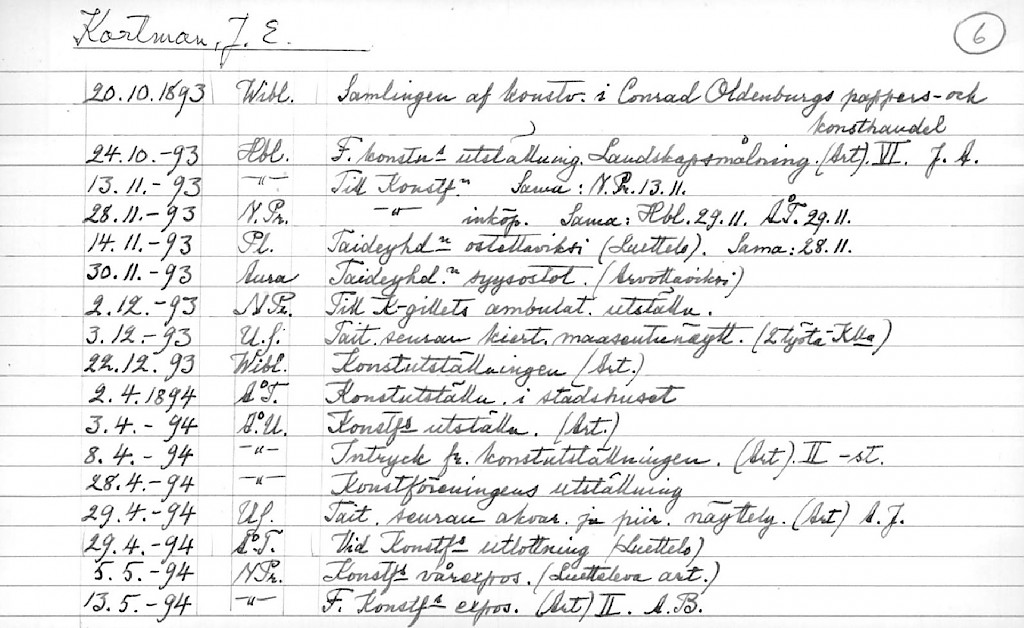 Kortman, J. E.
6
20.10.1893 Wibl. Samlingen af konstv. i Conrad Oldenburgs pappers- och
konsthandel
24.10.-93 Hbl. F. konstns utställning. Landskapsmålning. (Art). VI. J. A.
13.11.-93 -"- Till Konstf.n Sama: N.Pr. 13.11.
28.11.-93 N.Pr. -"- inköp. Sama: Hbl. 29.11. Å.T. 29.11.
14.11.-93 Pl. Taideyhd n ostettaviksi (Luettelo). Sama: 28.11.
30.11.-93 Aura Taideyhd.n syysostot. (Arvottaviksi)
2.12.-93 N Pr. Till K-gillets ambulat. utställn.
3.12.-93 U.S. Tait. seuran kiert. maaseutunäytt. (2 työtä K:lla)
22.12.93 Wibl. Konstutställningen (Art.)
2.4.1894 Å.T. Konstutställn. i stadshuset
3.4.-94 Å.U. Konstfs utställn. (Art.)
8.4.-94 -"- Intryck fr. konstutställningen. (Art). II -st.
28.4.-94 -"- Konstföreningens utställning
29.4.-94 US. Tait. seuran akvar. ja piir. näyttely. (Art) A.J.
29.4.-94 Å.T. Vid Konstfs utlottning (Luettelo)
5.5.-94 N Pr. Konstfs vårexpos. (Luetteleva art.)
13.5.-94 -"- F. Konstfs expos. (Art) II. A.B.